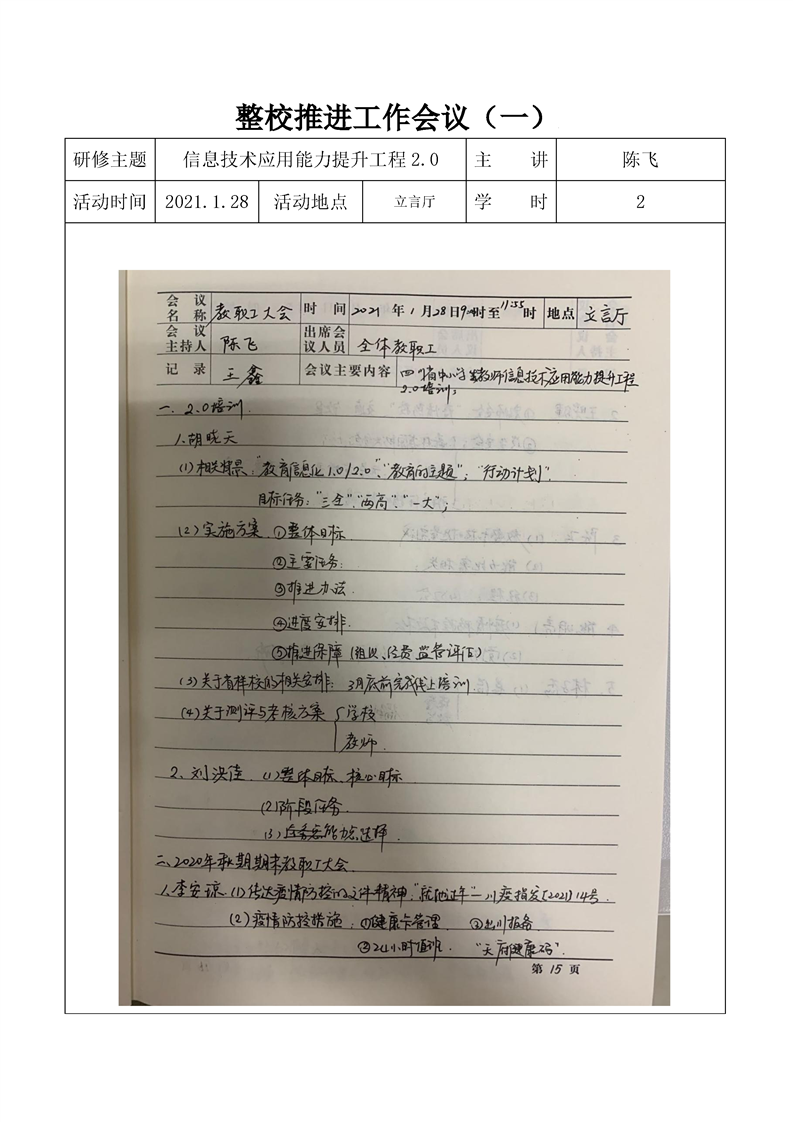 整校推进工作会议（一）
研修主题 信息技术应用能力提升工程2.0 主 讲 陈飞
活动时间 2021.1.28 活动地点 立言厅 学 时 2
会议名称 教职工大会 时间 2021年1月28日9:00时至11:55时 地点 立言厅
会议主持人 陈飞 出席会议人员 全体教职工
记录 王鑫 会议主要内容 四川省中小学教师信息技术应用能力提升工程
2.0培训;
一. 2.0培训.
1.胡晓天
(1)相关背景:"教育信息化1.0/2.0"、"教育的主题"; "行动计划".
目标任务:"三全""两高""一大";
(2)实施方案 ①整体目标
②主要任务:
③推进办法.
④进度安排.
⑤推进保障(组织、经费、监管评估)
(3)关于有样校的相关安排: 3月底前完成线上培训.
(4)关于测评与考核方案 { 学校
教师.
2. 刘洪佳. (1)整体目标、核心目标
(2)阶段任务.
(3) 能力点选择.
二、2020年秋期期末教职工大会.
1.李安琼.(1)传达疫情防控的文件精神."就地过年"—川疫指发[2021]14号.
(2)疫情防控措施: ①健康卡管理 ②出川报备.
③24小时值班. "天府健康码".
第15页